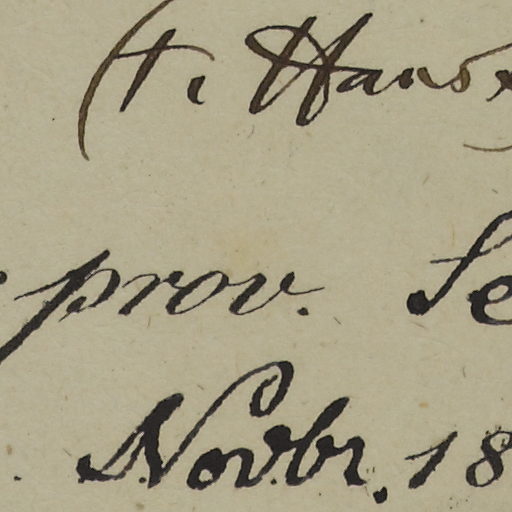 (t. Hans
prov. Se
Novbr. 18